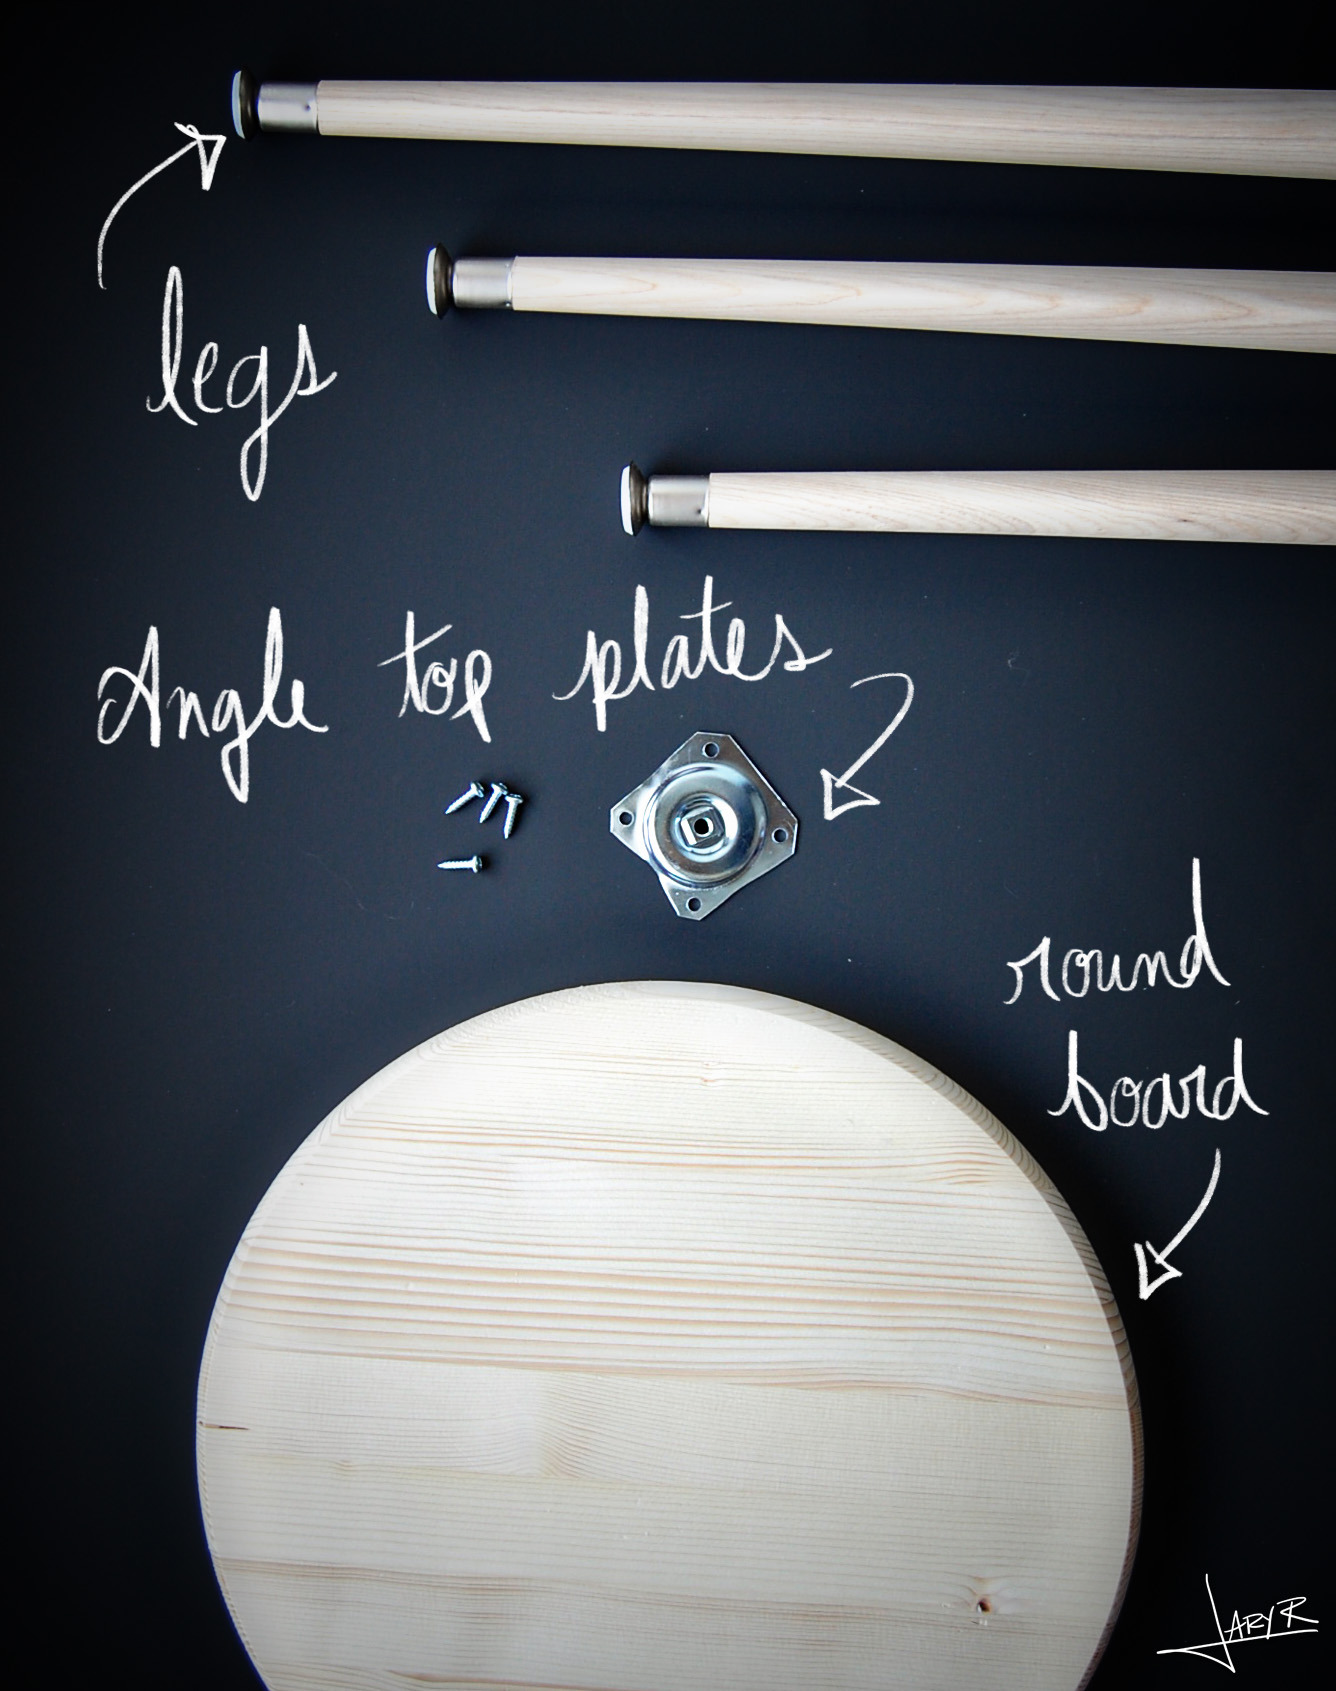 legs
Angle top plates
round
board
JARYR